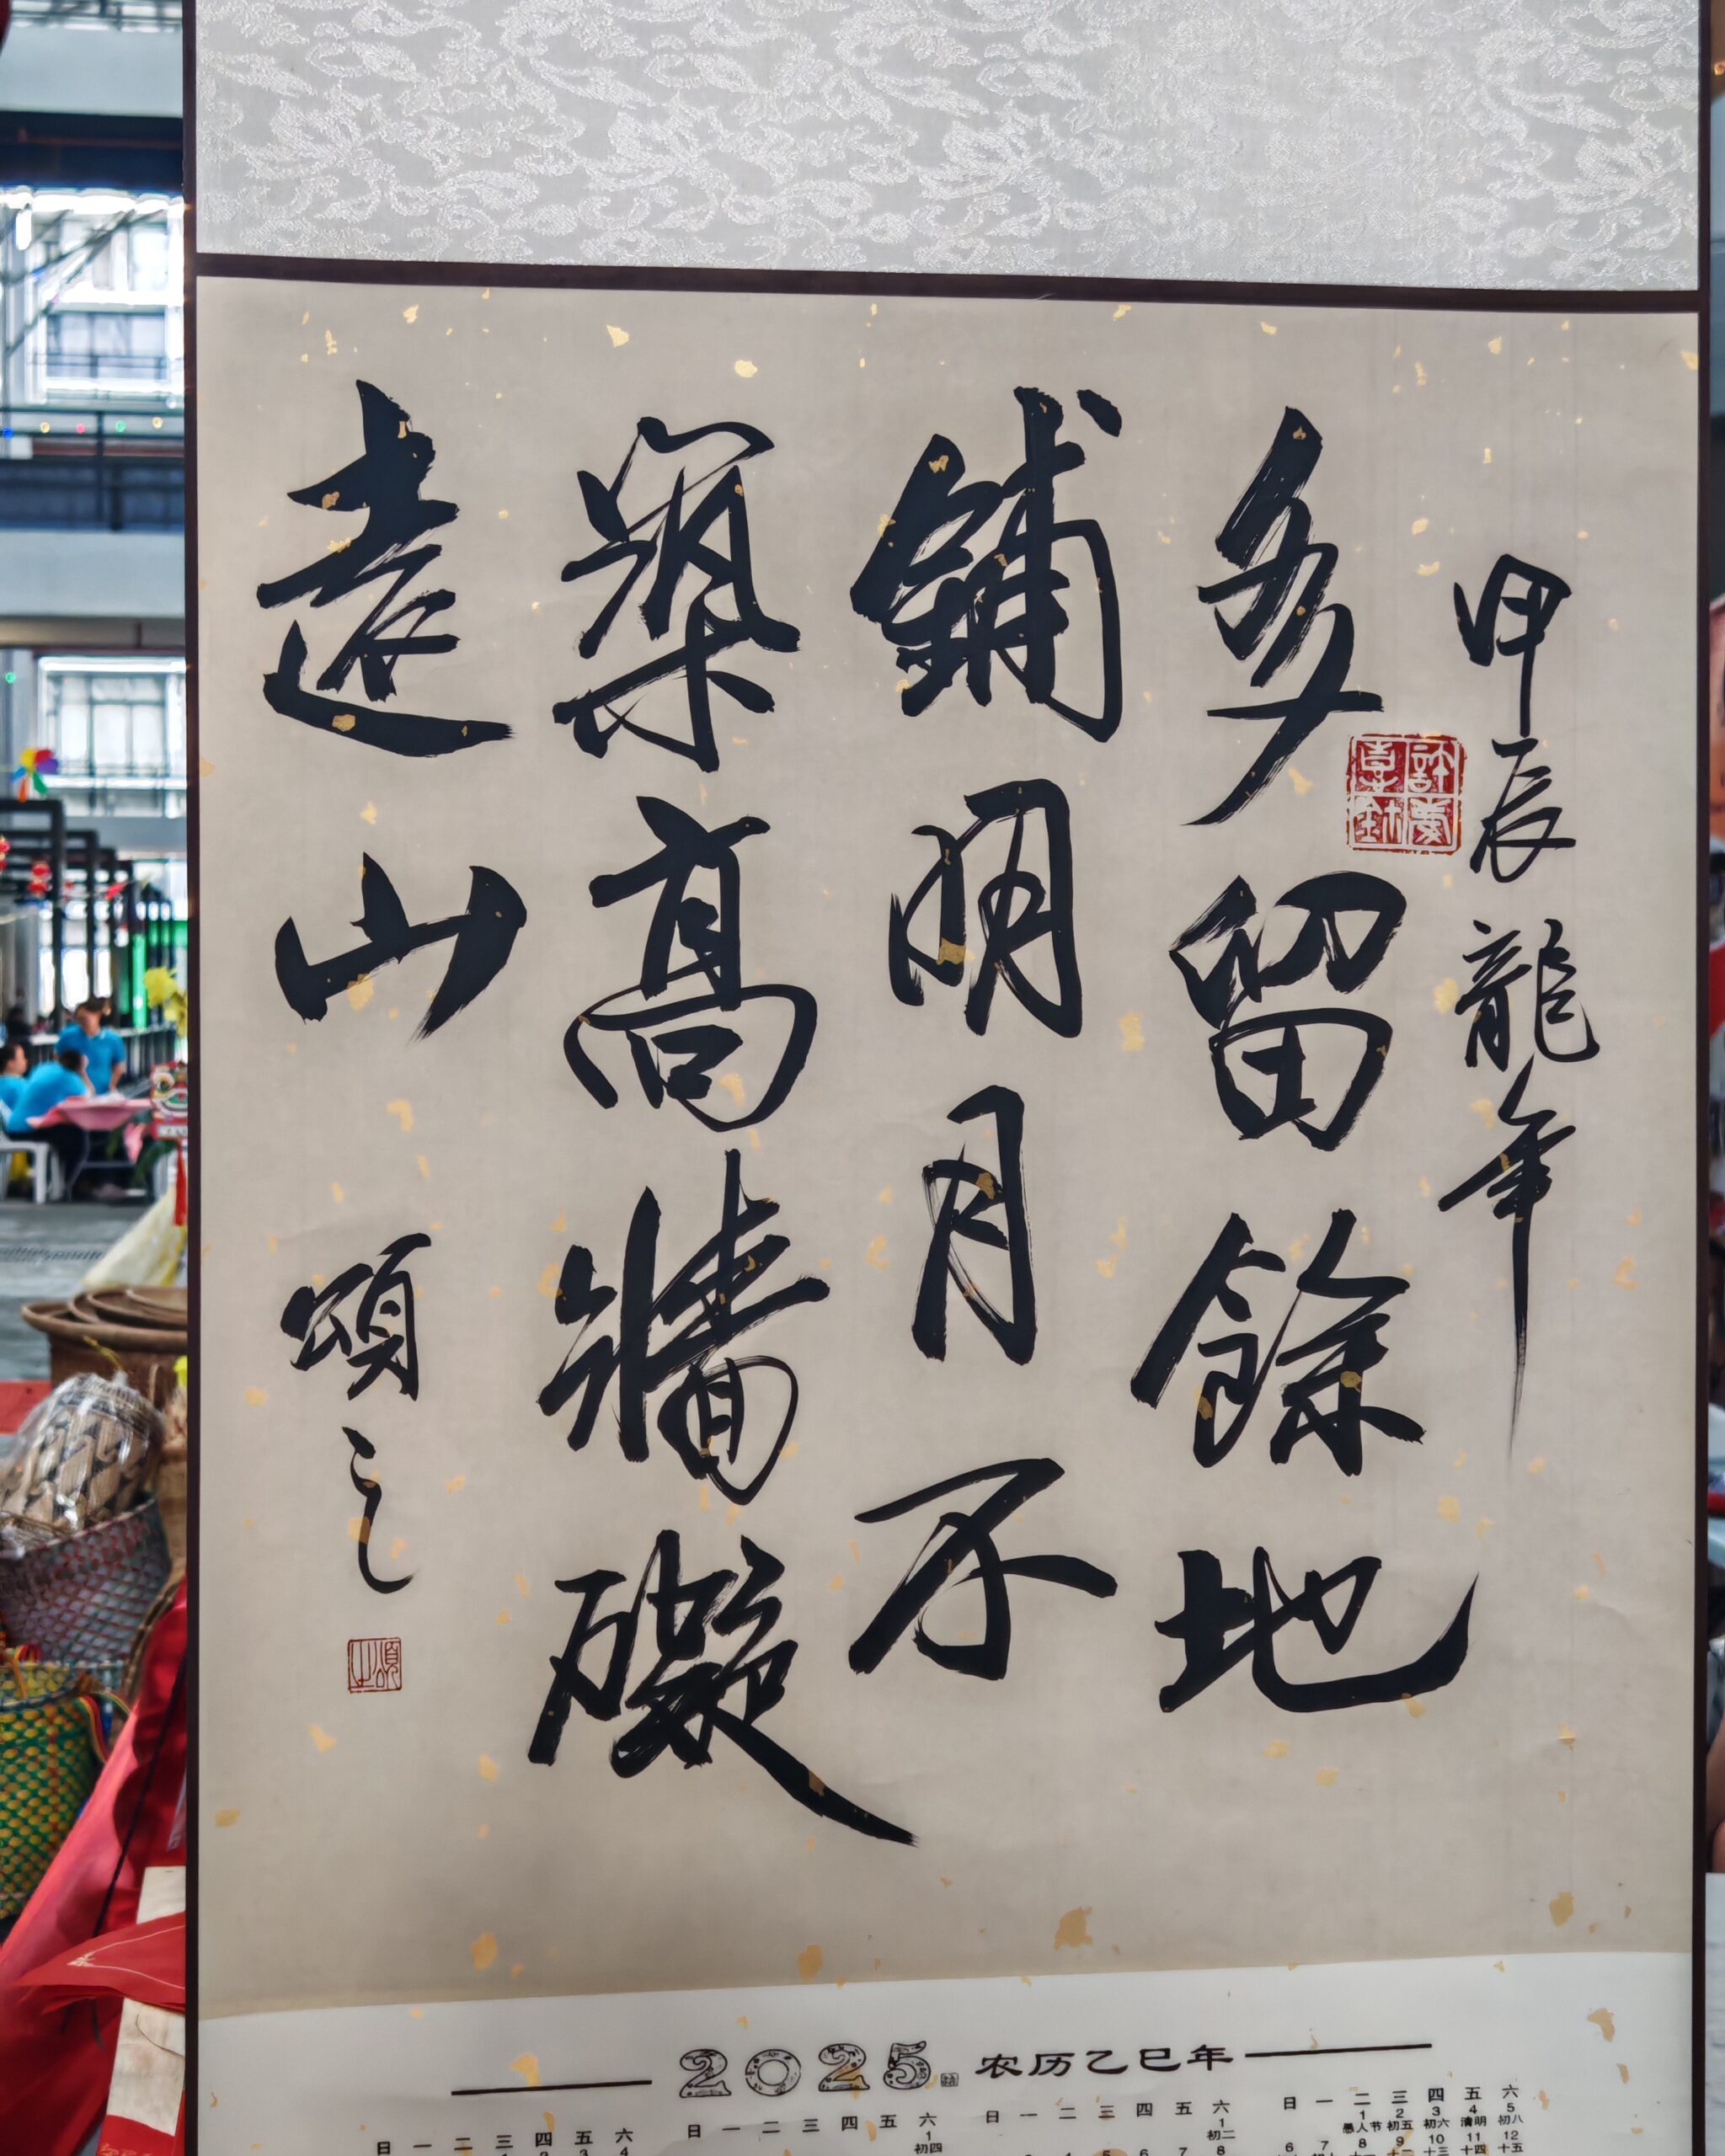 甲辰龍年
多留餘地
鋪明月不
築高牆礙
遠山
頌之
頌之
2025 农历乙巳年
日 一 二 三 四 五 六
日 一 二 三 四 五 六
1
初四
日 一 二 三 四 五 六
1
初二
4 5 6 7 8
日 一 二 三 四 五 六
1 2 3 4 5
愚人节 初五 初六 清明 初八
6 7 8 9 10 11 12
十三 十四 十五